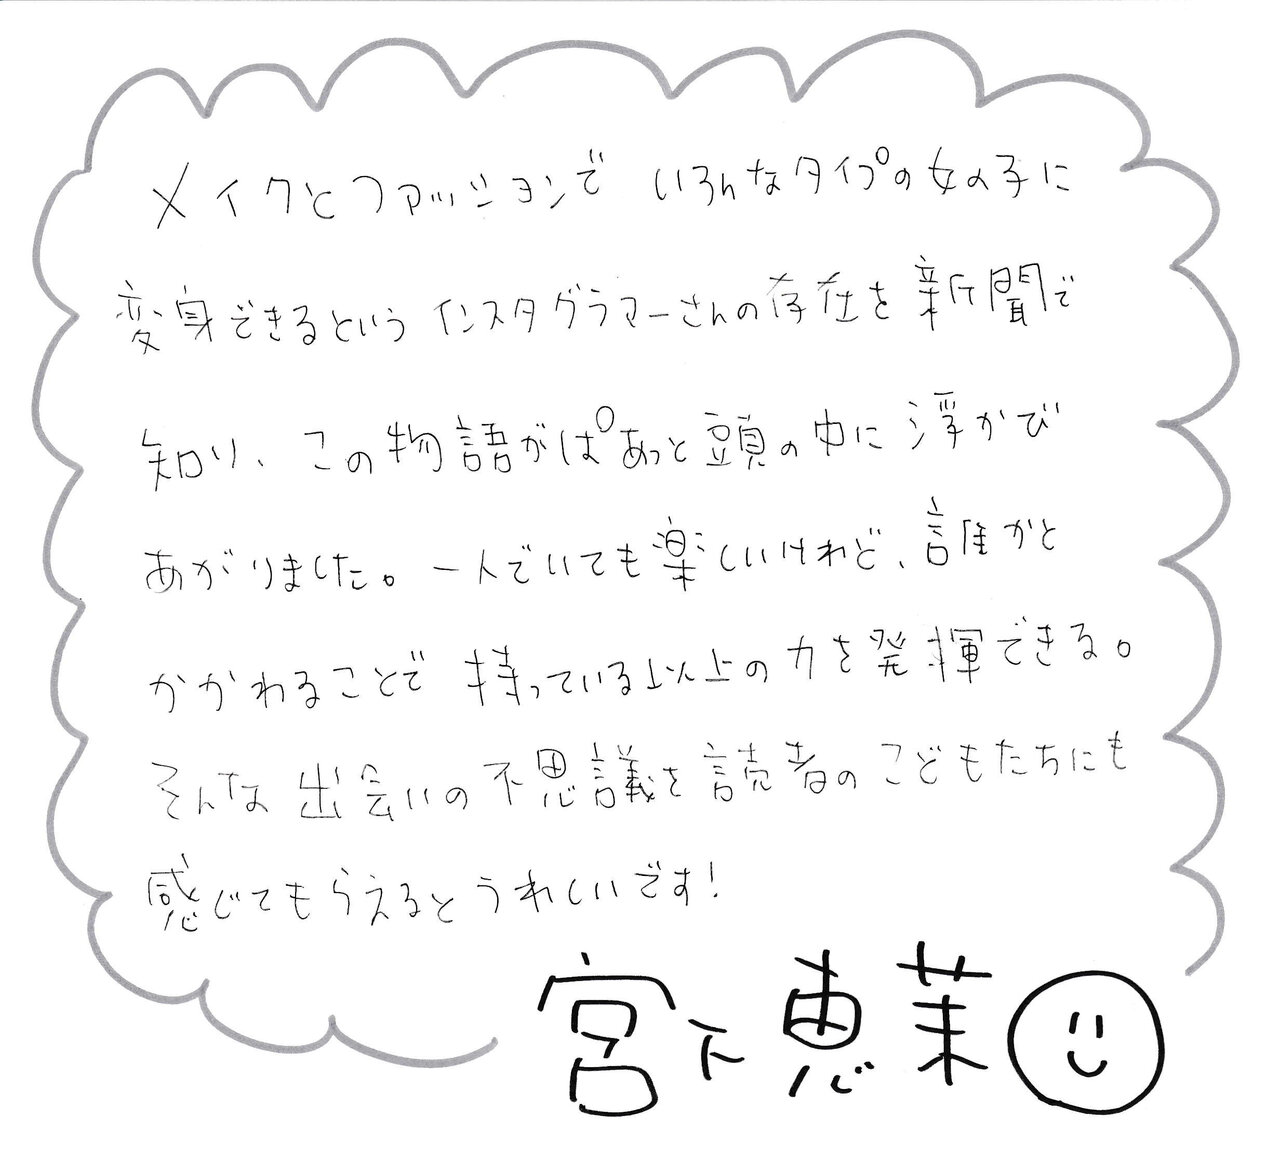 メイクとファッションで いろんなタイプの女の子に
変身できるという インスタグラマーさんの存在を新聞で
知り、この物語がぱあっと頭の中に浮かび
あがりました。一人でいても楽しいけれど、誰かと
かかわることで 持っている以上の力を発揮できる。
そんな出会いの不思議を読者のこどもたちにも
感じてもらえるとうれしいです!
宮下恵茉